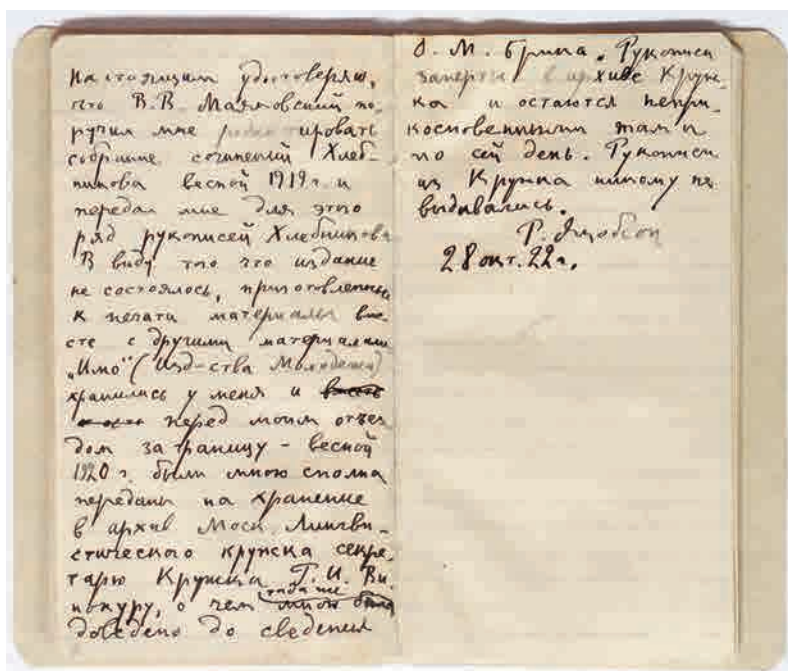 Настоящим удостоверяю,
что В.В. Маяковский по-
ручил мне редактировать
собрание сочинений Хлеб-
никова весной 1919 г. и
передал мне для этого
ряд рукописей Хлебникова
В виду того что издание
не состоялось, приготовленные
к печати материалы вме-
сте с другими материалами
„Имо" (Изд-ства Молодежи)
хранились у меня и
перед моим отъез
дом за границу – весной
1920 г. были мною сполна
переданы на хранение
в архив Моск. Лингви-
стического кружка секре-
тарю Кружка Г. И. Ви-
нокуру, о чем тогда же мною было
доведено до сведения
О. М. Брика. Рукописи
заперты в архиве Круж-
ка и остаются непри-
косновенными там и
по сей день. Рукописи
из Кружка никому не
выдавались.
Р. Якобсон
28 окт. 22 г.